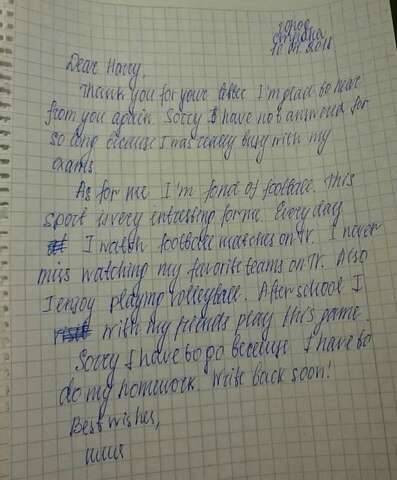 город
страна
Dear Harry,
Thank you for your letter I'm place to hear
from you again. Sorry I have not answord for
so long because I was really busy with my
exams.
As for me I'm fond of football. This
sport is very intressing for me. Every day
I watch football matches on TV. I never
miss watching my favorite teams on TV. Also
I enjoy playing volleyball. After school I
with my friends play this game.
Sorry I have to go because I have to
do my homework. Write back soon!
Best wishes,
имя